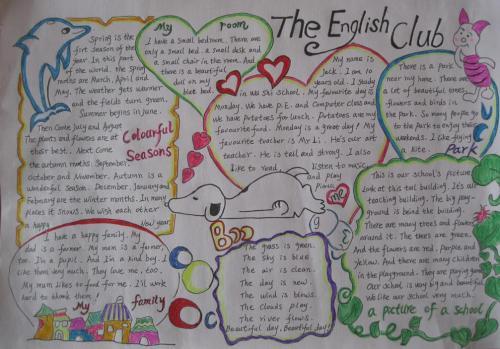 The English Club
My room
I have a small bedroom. There are
only a small bed. a small desk and
a small chair in the room. And
there is a beautiful
doll on my
blue bed.
Spring is the
first season of the
year. In this part
of the world. the spring
months are March. April and
May. The weather gets warmer
and the fields turn green.
Summer begins in June.
Then come July and August
The plants and flowers are at
their best. Next come
the autumn months: September.
October and November. Autumn is a
wonderful season. December. January and
February are the winter months. In many
places it snows. We wish each other
a happy New year
Colourful
Seasons
My name is
Jack. I am 10
years old. I study
in Wu Shi school. My favourite day is
Monday. We have P.E. and Computer class and
We have Potatoes for lunch. Potatoes are my
favourite food. Monday is a great day! My
favourite teacher is Mr Li. He's our art
teacher. He is tall and strong. I also
like to read, listen to music
and play
Piano.
me
There is a park
near my home. There are
a lot of beautiful trees,
flowers and birds in
the park. So many people go
to the Park to enjoy their
weekends. I like flying
a kite.
Park
This is our school's picture.
Look at this tall building. It's our
teaching building. The big play-
ground is behind the building.
There are many trees and flowers
around it. The trees are green.
And the flowers are red, purple and
yellow. And there are many children
in the playground. They are playing games
Our school is very big and beautiful
We like our school very much.
a picture of a school
I have a happy family. My
dad is a farmer. My mom is a farmer,
too. I'm a pupil. And I'm a kind boy. I
like them very much. They love me, too.
My mum likes to food for me. I'll work
hard to thank them.
My family
The grass is green.
The sky is blue.
The air is clean.
The day is new.
The wind is blows.
The clouds play.
The river flows.
Beautiful day, Beautiful day!